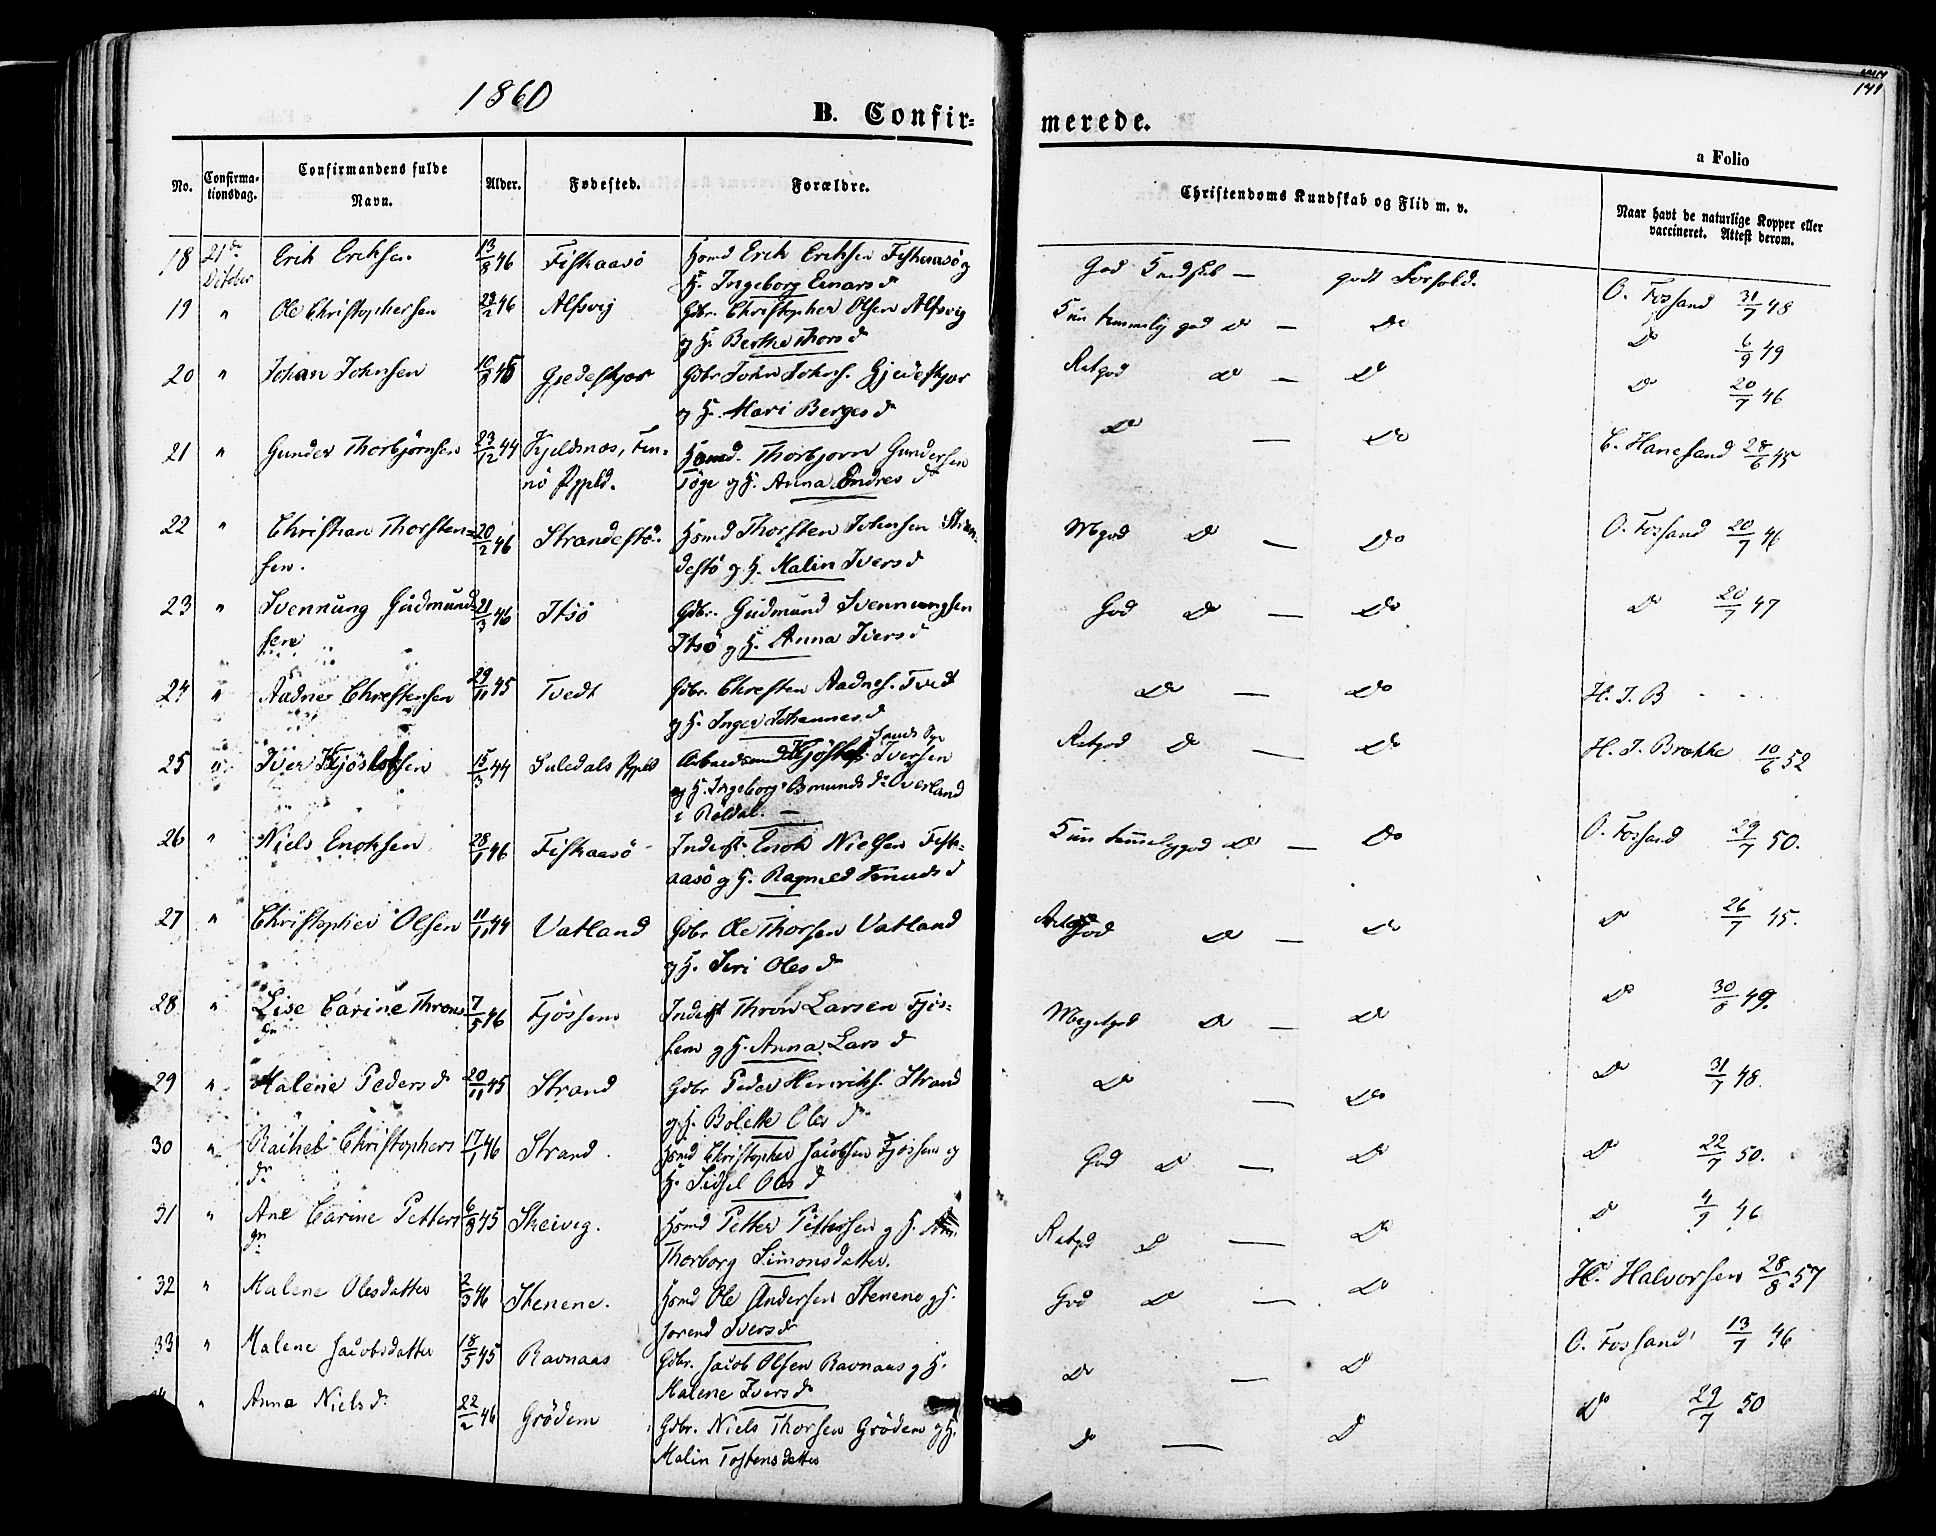 1860
B. Confir-
merede.
141
a Folio
No.
Confirma-
tionsdag.
Confirmandens fulde
Navn.
Alder.
Fødested.
Forældre.
Christendoms Kundskab og Flid m. v.
Naar havt de naturlige Kopper eller
vaccineret. Attest derom.
18 21de October Erik Eriksen 13/8 46 Fiskaasö Hsmd Erik Eriksen Fiskaasö og
H. Ingeborg Einarsd
God Kundskab — godt Forhold. O. Fossand 31/7 48
19 " Ole Christophersen 22/2 46 Alsvig Gbr. Christopher Olsen Alsvig
og H. Berthe Thorsd
Kun temmelig god Do — Do Do 6/9 49
20 " Johan Johnsen 45 Gjedeskjær Gbr John Johns. Gjedeskjær
og H. Mari Bergesd
Retgod Do — Do Do 20/7 46
21 " Gunder Thorbjörnsen 23/12 44 Kjeldsnæs, Fin-
nö Pgjeld.
Hsmd. Thorbjørn Gundersen
Söge og H. Anna Endresd
Do — Do C. Hanesand 28/6 45
22 " Christian Thorsten-
sen. 20/2 46 Strandestö Hsmd Thorsten Johnsen Stran-
destö og H. Malin Iversd
Mgod Do — Do O. Fossand 20/7 46
23 " Svennung Gudmund-
sen 21/3 46 Itsö Gbr. Gudmund Svennungsen
Itsö og H. Anna Iversd
God Do — Do Do 20/7 47
24 " Aadne Christensen 29/11 45 Tvedt Gbr. Christen Aadnes. Tvedt
og H. Inger Johannesd
Do — Do H. I. B
25 " Iver Kjöstolfsen 15/3 44 Suledals Pgjeld Arbeidsmd Kjöstolf Iversen
og H. Ingeborg Osmundsdr Overland
i Röldal. —
Retgod Do — Do H. I. Brække 10/6 52
26 " Niels Enoksen 28/1 46 Fiskaasö Inderst Enok Nielsen Fisk-
aasö og H. Ragnild Knudsd
Kun temmelig god Do — Do O. Fossand 29/7 50.
27 " Christopher Olsen 11/11 44 Vatland Gbr Ole Thorsen Vatland
og H. Siri Olesd
God Do — Do Do 26/7 45.
28 " Lise Carine Throns
dr 7/5 46 Fjössem Inderst Thron Larsen Fjös-
sem og H. Anna Larsd
Megetgod Do — Do Do 30/8 49.
29 " Malene Pedersd 20/11 45 Strand Gbr Peder Henriks. Strand
og H. Bolette Olesd
Do — Do Do 31/7 48.
30 " Rachel Christophers
dr 17/1 46 Strand. Hsmd Christopher Jacobsen Fjössem og
H. Sidsel Olesd
God Do — Do Do 22/7 50.
31 " Ane Carine Petters
dr 6/8 45 Skeivig. Hsmd Petter Pettersen og H.
Thorborg Simonsdatter.
Retgod Do — Do Do 4/9 46
32 " Malene Olesdatter 2/3 46 Stenene. Hsmd Ole Andersen Stenene og H.
Jorend Iversdr
God Do — Do H. Halvorsen 28/8 57
33 " Malene Jacobsdatter 18/5 45 Ravnaas Gbr. Jacob Olsen Ravnaas og H.
Malene Iversdr
Do — Do O. Fossand 13/7 46
" Anna Nielsd. 22/2 46 Grödem Gbr. Niels Thorsen Grödem og H.
Malin Tostensdatter
Do — Do Do 29/7 50